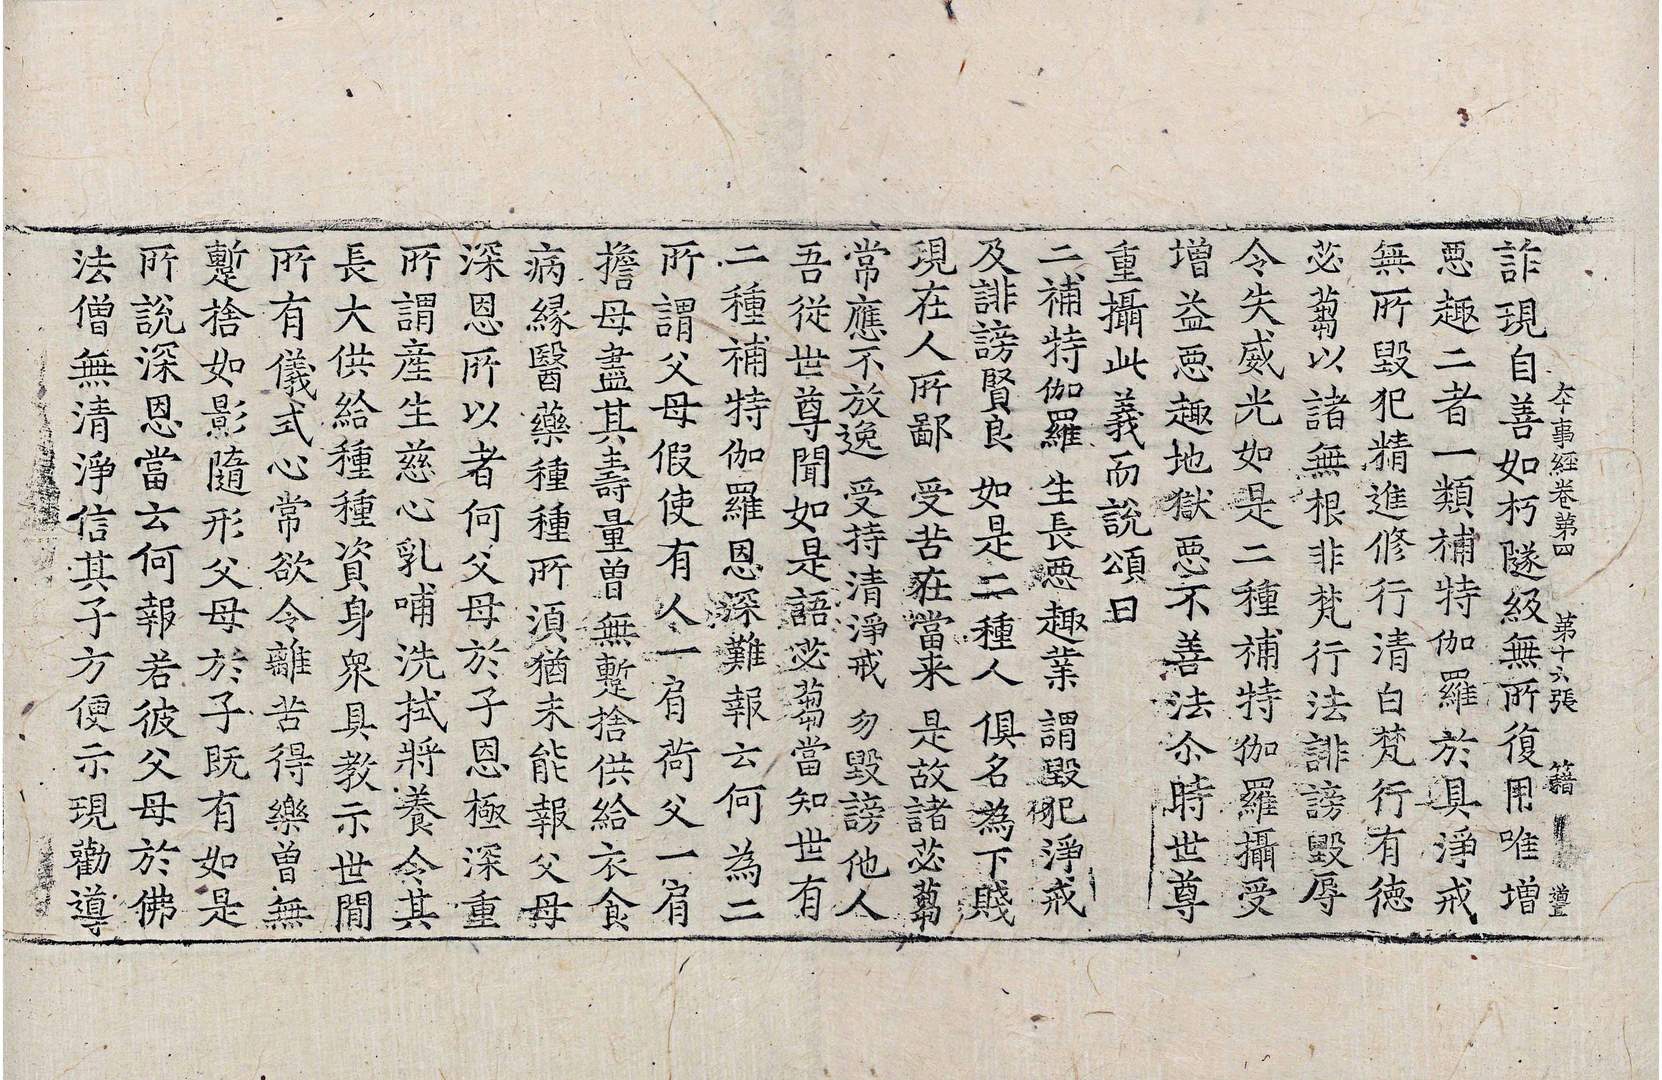 詐現自善如朽隧級無所復用唯增
本事經卷第四　第十六張　籍　道
惡趣二者一類補特伽羅於具淨戒
無所毀犯精進修行清白梵行有德
苾蒭以諸無根非梵行法誹謗毀辱
令失威光如是二種補特伽羅攝受
增益惡趣地獄惡不善法尒時世尊
重攝此義而說頌曰
二補特伽羅　生長惡趣業　謂毀犯淨戒
及誹謗賢良　如是二種人　俱名為下賤
現在人所鄙　受苦在當来　是故諸苾蒭
常應不放逸　受持清淨戒　勿毀謗他人
吾從世尊聞如是語苾蒭當知世有
二種補特伽羅恩深難報云何為二
所謂父母假使有人一肩荷父一肩
擔母盡其壽量曾無蹔捨供給衣食
病縁醫藥種種所湏猶未能報父母
深恩所以者何父母於子恩極深重
所謂産生慈心乳哺洗拭將養令其
長大供給種種資身衆具教示世閒
所有儀式心常欲令離苦得樂曾無
蹔捨如影隨形父母於子既有如是
所說深恩當云何報若彼父母於佛
法僧無清淨信其子方便示現勸導